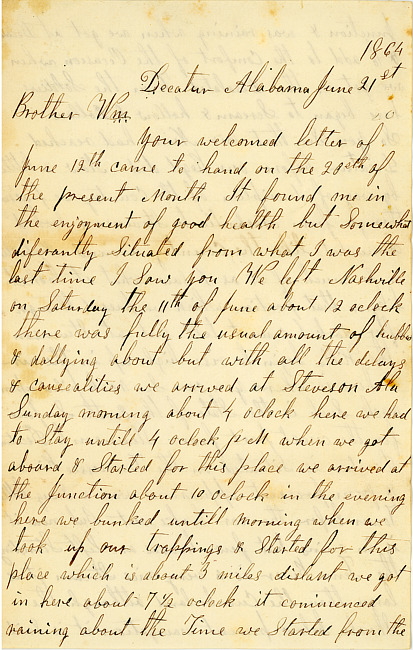 1864
Decatur Alabama June 21st
Brother Wm
Your welcomed letter of
June 12th came to hand on the 20th of
the present Month It found me in
the enjoyment of good health but Somewhat
diferantly Situated from what I was the
last time I Saw you We left Nashville
on Saturday the 11th of June about 12 oclock
there was fully the usual amount of
& dallying about but with all the delays
& causealities we arrived at Steveson Ala
Sunday morning about 4 oclock here we had
to Stay untill 4 oclock P M when we got
aboard & Started for this place we arrived at
the Junction about 10 oclock in the evening
here we bunked untill morning when we
took up our trappings & Started for this
place which is about 3 miles distant we got
in here about 7 1/2 oclock it commenced
raining about the Time we Started from the